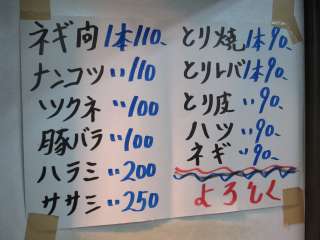 ネギ向 1本110-
ナンコツ 〃110
ツクネ 〃100
豚バラ 〃100
ハラミ 〃200
ササミ 〃250
とり焼 1本90-
とりレバ 1本90-
とり皮 〃90-
ハツ 〃90-
ネギ 〃90-
よろしく